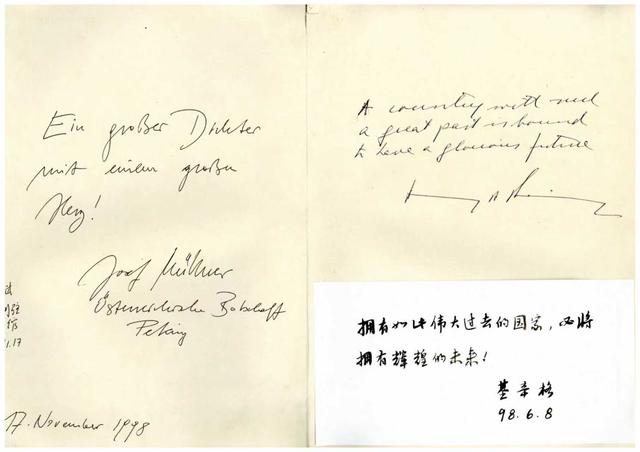 Ein großer Dichter
mit einem großen
Herz!
Josef Müllner
Österreichische Botschaft
Peking
17. November 1998
1.17
A country with such
a great past is bound
to have a glorious future
拥有如此伟大过去的国家，必将
拥有辉煌的未来！
基辛格
98.6.8